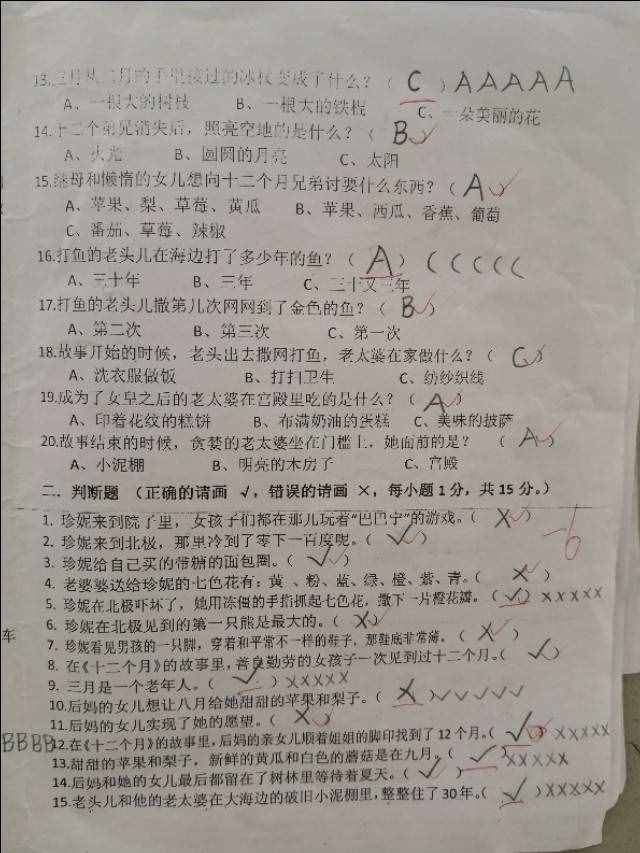 13.三月从二月的手里接过的冰杖变成了什么？（ C ）AAAAA
A、一根大的树枝 B、一根大的铁棍 C、一朵美丽的花
14.十二个弟兄消失后，照亮空地的是什么？（ B ）
A、火光 B、圆圆的月亮 C、太阳
15.继母和懒惰的女儿想向十二个月兄弟讨要什么东西？（ A ）
A、苹果、梨、草莓、黄瓜 B、苹果、西瓜、香蕉、葡萄
C、番茄、草莓、辣椒
16.打鱼的老头儿在海边打了多少年的鱼？（ A ）CCCCC
A、三十年 B、三年 C、三十又三年
17.打鱼的老头儿撒第几次网网到了金色的鱼？（ B ）
A、第二次 B、第三次 C、第一次
18.故事开始的时候，老头出去撒网打鱼，老太婆在家做什么？（ C ）
A、洗衣服做饭 B、打扫卫生 C、纺纱织线
19.成为了女皇之后的老太婆在宫殿里吃的是什么？（ A ）
A、印着花纹的糕饼 B、布满奶油的蛋糕 C、美味的披萨
20.故事结束的时候，贪婪的老太婆坐在门槛上，她面前的是？（ A ）
A、小泥棚 B、明亮的木房子 C、宫殿
二．判断题 （正确的请画 √，错误的请画 ×，每小题 1 分，共 15 分。）
1. 珍妮来到院子里，女孩子们都在那儿玩着“巴巴宁”的游戏。（ × ）
-6
2. 珍妮来到北极，那里冷到了零下一百度呢。（ √ ）
3. 珍妮给自己买的带糖的面包圈。（ √ ）
4. 老婆婆送给珍妮的七色花有：黄、粉、蓝、绿、橙、紫、青。（ × ）
5. 珍妮在北极吓坏了，她用冻僵的手指抓起七色花，撒下一片橙花瓣。（ √ ）×××××
6. 珍妮在北极见到的第一只熊是最大的。（ × ）
7. 珍妮看见男孩的一只脚，穿着和平常不一样的鞋子，那鞋底非常薄。（ × ）
8. 在《十二个月》的故事里，善良勤劳的女孩子一次见到过十二个月。（ √ ）
9. 三月是一个老年人。（ √ ）×××××
10.后妈的女儿想让八月给她甜甜的苹果和梨子。（ × ）√√√√√
11.后妈的女儿实现了她的愿望。（ × ）
BBBB 12.在《十二个月》的故事里，后妈的亲女儿顺着姐姐的脚印找到了 12 个月。（ √ ）×××××
13.甜甜的苹果和梨子，新鲜的黄瓜和白色的蘑菇是在九月。（ √ ）×××××
14.后妈和她的女儿最后都留在了树林里等待着夏天。（ √ ）
15.老头儿和他的老太婆在大海边的破旧小泥棚里，整整住了 30 年。（ √ ）×××××
车